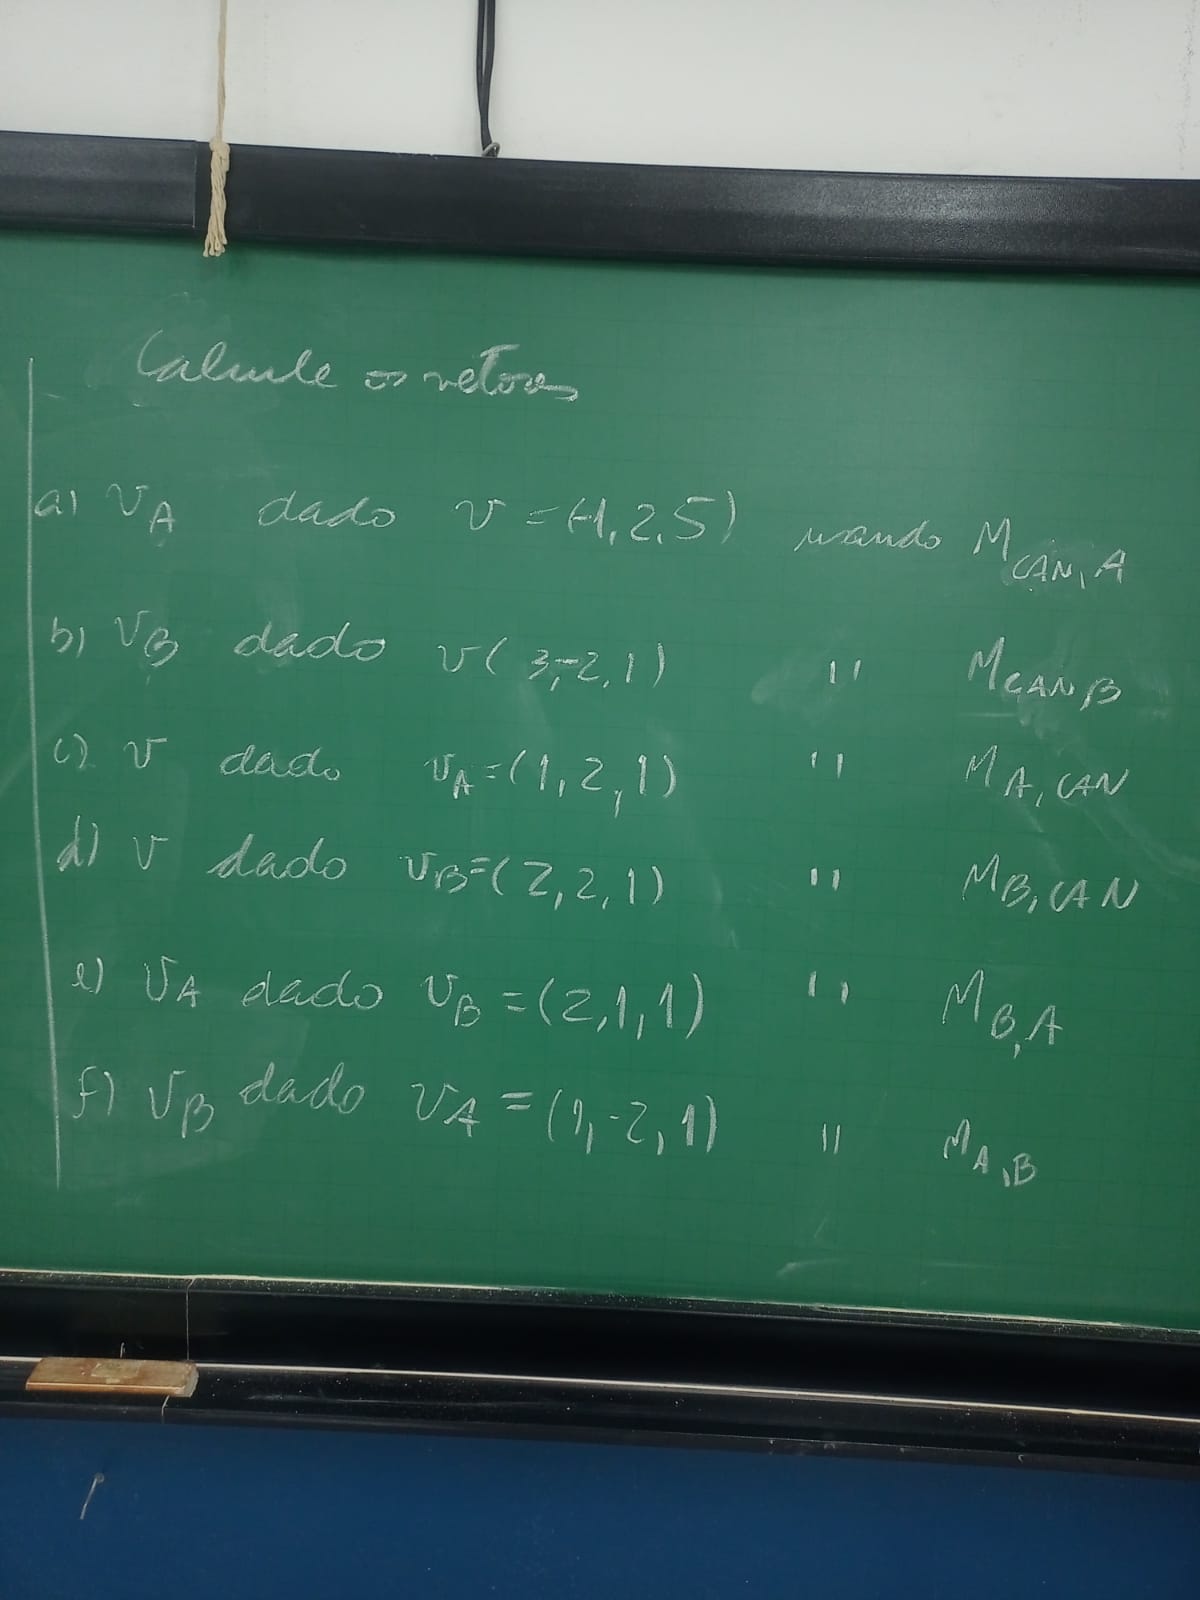 Calcule os vetores
a) v_A dado v = (-1, 2, 5) usando M_CAN, A
b) v_B dado v(3, -2, 1) " M_CAN, B
c) v dado v_A = (1, 2, 1) " M_A, CAN
d) v dado v_B = (2, 2, 1) " M_B, CAN
e) v_A dado v_B = (2, 1, 1) " M_B, A
f) v_B dado v_A = (1, -2, 1) " M_A, B